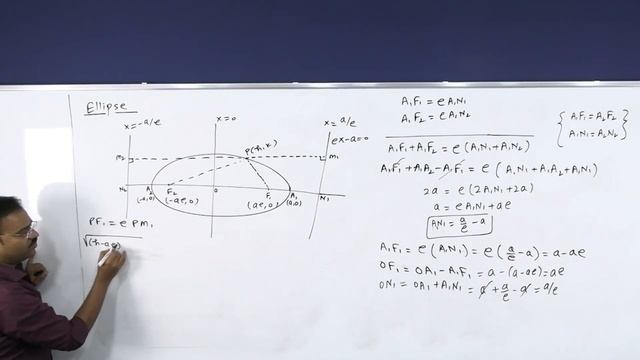 Ellipse
x=-a/e
x=0
x=a/e
ex-a=0
P(h,k)
M2
M1
N2
A2
F2
0
F1
A1
N1
(-a,0)
(-ae,0)
(ae,0)
(a,0)
PF1 = e PM1
√(h-ae)
A1F1 = e A1N1
A1F2 = e A1N2
{ A1F1 = A2F2
A1N1 = A2N2 }
A1F1 + A1F2 = e (A1N1 + A1N2)
A1F1 + A1A2 - A1F1 = e ( A1N1 + A1A2 + A1N1)
2a = e (2A1N1 + 2a)
a = e A1N1 + ae
A1N1 = a/e - a
A1F1 = e (A1N1) = e (a/e - a) = a - ae
OF1 = OA1 - A1F1 = a - (a - ae) = ae
ON1 = OA1 + A1N1 = a + a/e - a = a/e